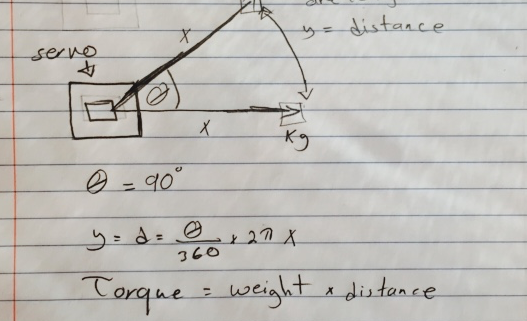 y = distance
x
servo
θ
x
Kg
θ = 90°
y = d = θ/360 × 2π x
Torque = weight × distance